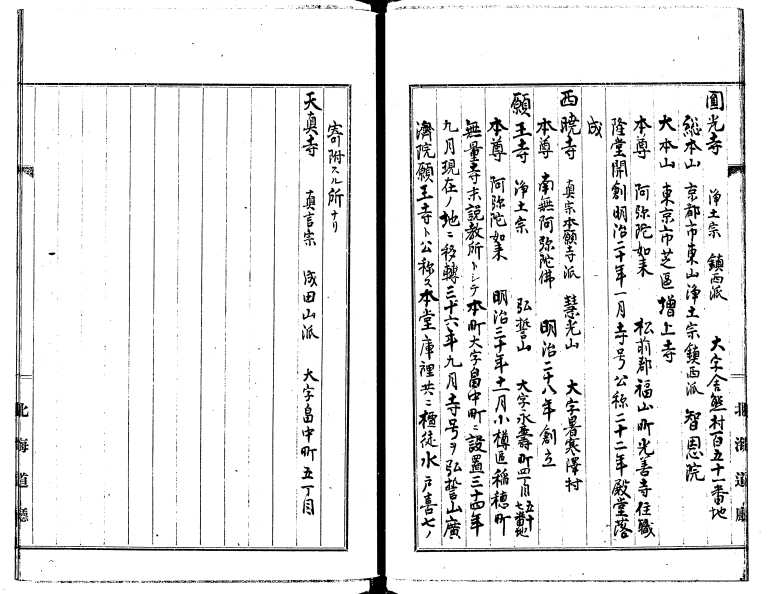 圓光寺 浄土宗 鎮西派 大字舎熊村百五十一番地
総本山 京都市東山浄土宗鎮西派 智恩院
大本山 東京市芝區 増上寺
本尊 阿弥陀如来 松前郡福山町光善寺住職
隆堂開創明治二十年一月寺号公称二十二年殿堂落
成
西暁寺 真宗本願寺派 慧光山 大字暑寒澤村
本尊 南無阿弥陀佛 明治二十八年創立
願王寺 浄土宗 弘誓山 大字永壽町四丁目五十七番地
本尊 阿弥陀如来 明治三十年十一月小樽區稲穂町
無量寺末説教所トシテ本町大字畠中町ニ設置三十四年
九月現在ノ地ニ移轉三十六年九月寺号ヲ弘誓山廣
濟院願王寺ト公称ス本堂庫裡共ニ檀徒水戸喜七ノ
北海道廳
寄附スル所ナリ
天真寺 真言宗 成田山派 大字畠中町五丁目
北海道廳